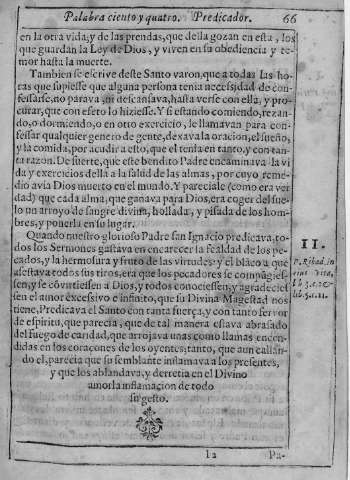 Palabra ciento y quatro. Predicador. 66
en la otra vida; y de las prendas, que della gozan en esta, los
que guardan la Ley de Dios, y viven en su obediencia y te-
mor hasta la muerte.
Tambien se escrive deste Santo varon, que a todas las ho-
ras que supiesse que alguna persona tenia necessidad de con-
fessarse, no parava, ni descansava, hasta verse con ella, y pro-
curar, que con efeto lo hiziesse. Y si estando comiendo, rezan-
do, o dormiendo, o en otro exercicio, le llamavan para con-
fessar qualquier genero de gente, dexava la oracion, el sueño,
y la comida, por acudir a esto, que el tenia en tanto, y con tan-
ta razon. De suerte, que este bendito Padre encaminava la vi
da y exercicios della a la salud de las almas, por cuyo reme-
dio avia Dios muerto en el mundo. Y pareciale (como era ver
dad) que cada alma, que ganava para Dios, era coger del sue-
lo un arroyo de sangre divina, hollada, y pisada de los hom-
bres, y ponerla en su lugar.
Quando nuestro glorioso Padre san Ignacio predicava, to-
dos los Sermones gastava en encarecer la fealdad de los pe-
cados, y la hermosura y fruto de las virtudes: y el blãco a que
asestava todos sus tiros, era que los pecadores se compũgies-
sen, y se cõvirtiessen a Dios, y todos conociessen, y agradecies
sen el amor excessivo e infinito, que su Divina Magestad nos
tiene. Predicava el Santo con tanta fuerça, y con tanto fervor
de espiritu, que parecia, que de tal manera estava abrasado
del fuego de caridad, que arrojava unas como llamas encen-
didas en los coraçones de los oyentes; tanto, que aun callan-
do el, parecia que su semblante inflamava a los presentes,
y que los ablandava, y derretia en el Divino
amor la inflamacion de todo
su gesto.
II.
P. Ribad. in
lib. 3. c. 2. &
lib. 5. c. 11.
I2 Pa-